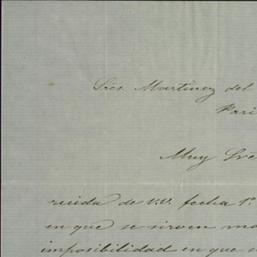 Sres. Martinez del
Pari
Muy Sres
recida de V.V. fecha 1º.
en que se sirven ma
imposibilidad en que